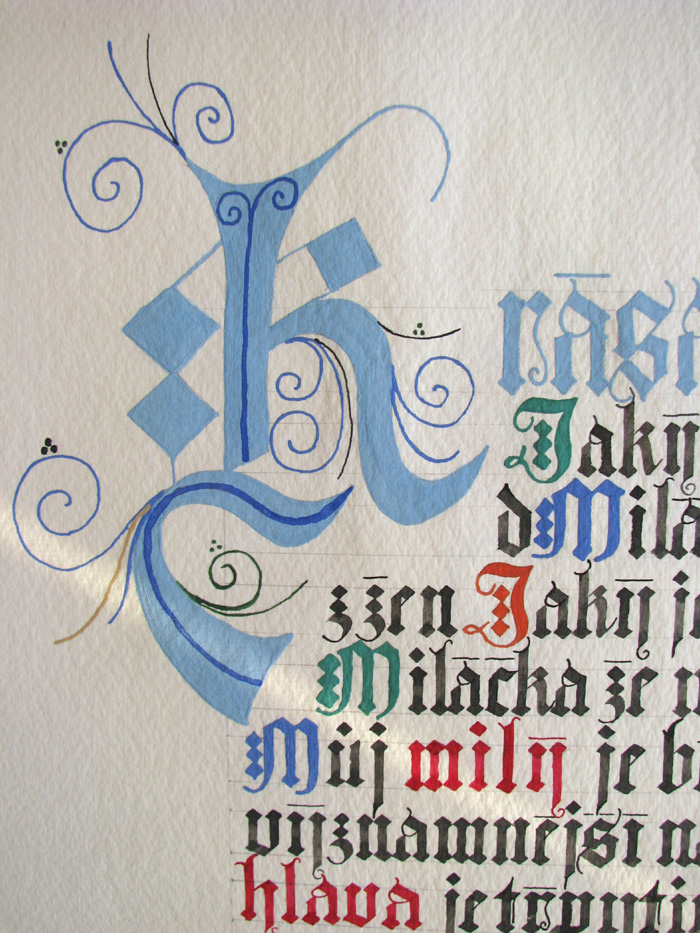 Krás
Jaký
d Milá
z žen Jaký je
Miláčka že n
Můj milý je b
významnější na
hlava je třpyti